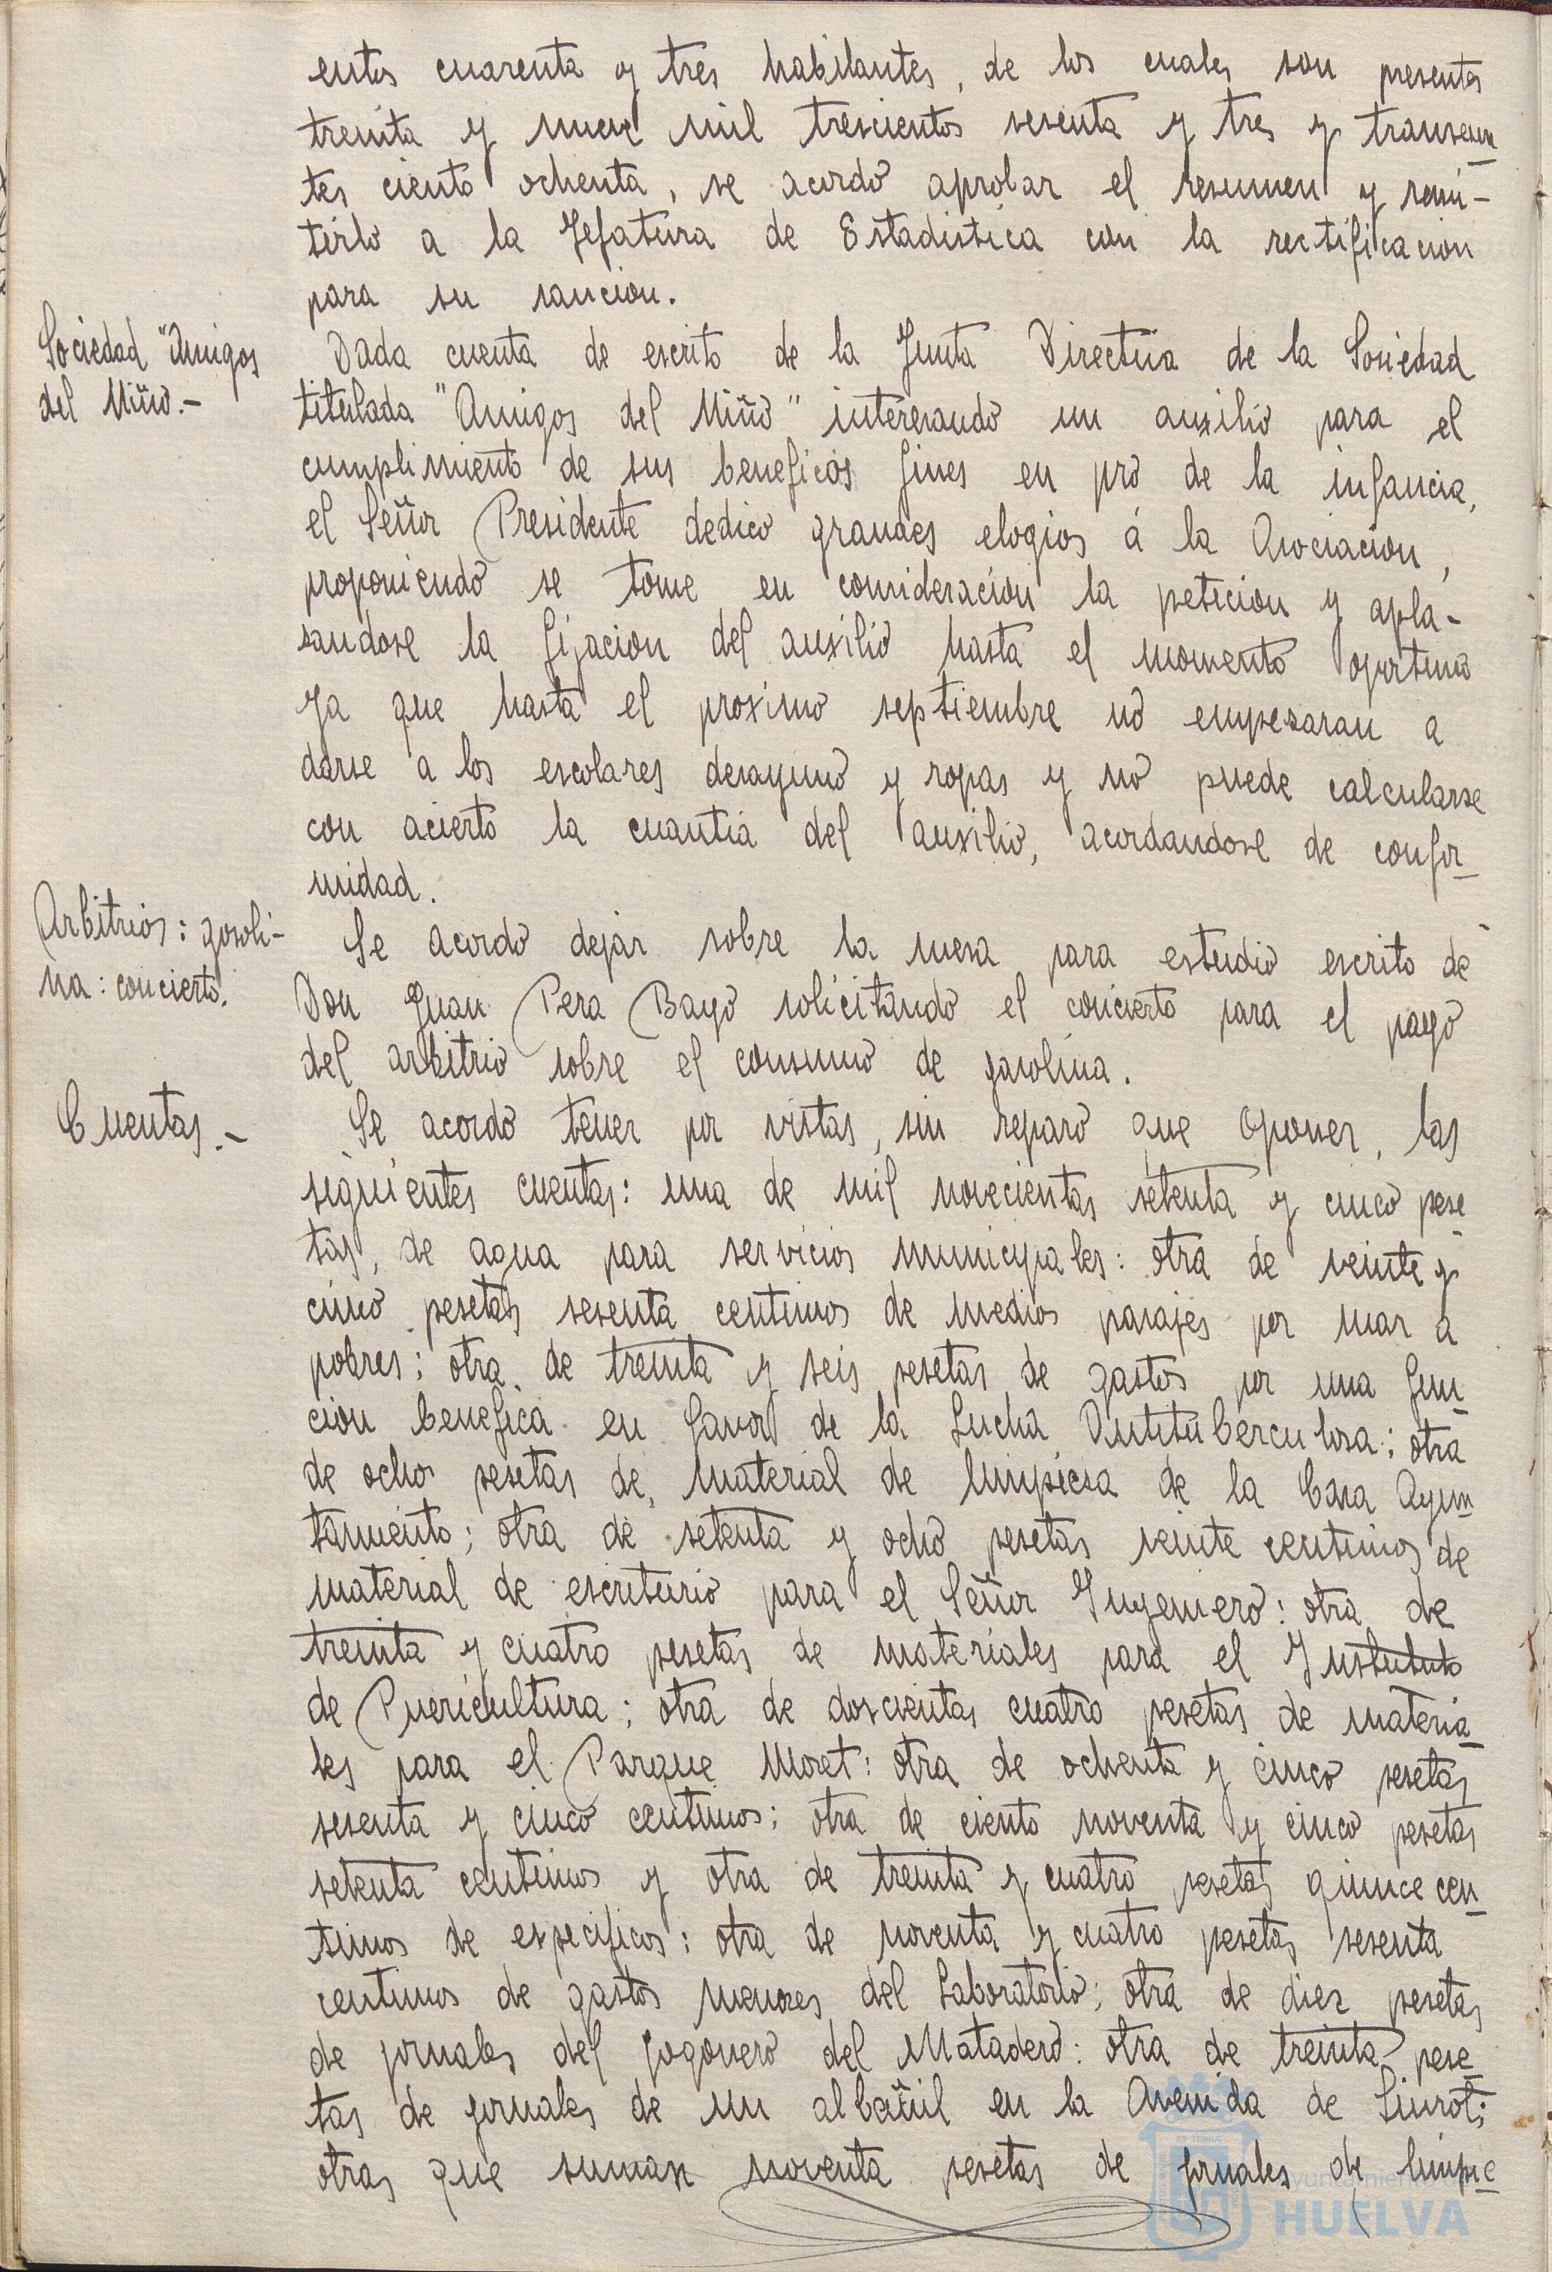 entos cuarenta y tres habitantes, de los cuales son presentes
treinta y nueve mil trescientos sesenta y tres y transeun
tes ciento ochenta, se acordo aprobar el resumen y remi-
tirlo a la Jefatura de Estadistica con la rectificacion
para su sancion.
Sociedad "Amigos
del Niño.-
Dada cuenta de escrito de la Junta Directiva de la Sociedad
titulada "Amigos del Niño" interesando un auxilio para el
cumplimiento de sus beneficos fines en pro de la infancia,
el Señor Presidente dedico grandes elogios á la Asociacion,
proponiendo se tome en consideracion la peticion y apla-
sandose la fijacion del auxilio hasta el momento oportuno
ya que hasta el proximo septiembre no empezaran a
darse a los escolares desayuno y ropas y no puede calcularse
con acierto la cuantia del auxilio, acordandose de confor
midad.
Arbitrios: gasoli-
na: concierto.
Se acordo dejar sobre la mesa para estudio escrito de
Don Juan Pera Bayo solicitando el concierto para el pago
del arbitrio sobre el consumo de gasolina.
Cuentas.-
Se acordo tener por vistas, sin reparo que oponer, las
siguientes cuentas: una de mil novecientas setenta y cinco pese
tas, de agua para servicios municipales: otra de veinte y
cinco pesetas sesenta centimos de medios pasajes por mar a
pobres: otra de treinta y seis pesetas de gastos por una fun
cion benefica en favor de la Lucha Antituberculosa: otra
de ocho pesetas de material de limpiesa de la Casa Ayun
tamiento; otra de setenta y ocho pesetas veinte centimos de
material de escritorio para el Señor Ingeniero: otra de
treinta y cuatro pesetas de materiales para el Instituto
de Puericultura; otra de doscientas cuatro pesetas de materia
les para el Parque Moret: otra de ochenta y cinco pesetas
sesenta y cinco centimos; otra de ciento noventa y cinco pesetas
setenta centimos y otra de treinta y cuatro pesetas quince cen
timos de especificos: otra de noventa y cuatro pesetas sesenta
centimos de gastos menores del Laboratorio; otra de diez pesetas
de jornales del fogonero del Matadero: otra de treinta pese
tas de jornales de un albañil en la Avenida de Siurot;
otras que suman noventa pesetas de jornales de limpie
Ayuntamiento de
HUELVA